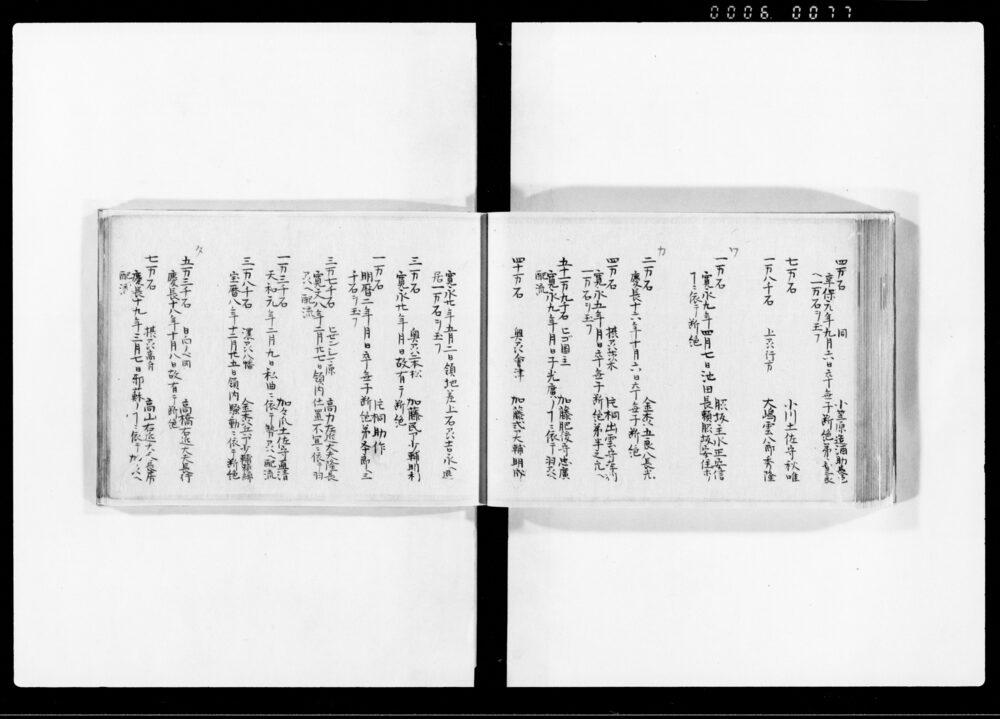 0006 0077
四万石 同 小笠原造酒助長邕
享保元年九月六日卒无子断絶弟長興
ヘ一万石ヲ玉フ
七万石 小川土佐守秋唯
一万八千石 上六行方 大嶋雲八郎秀隆
ワ
一万石 脇坂主水正安信
寛永九年四月七日池田長頼脇坂安佳カ
ヿニ依テ断絶
カ
二万石 金森五良八長光
慶長十六年十月六日卒无子断絶
四万石 片桐出雲守孝利
寛永五年月日卒无子断絶弟半之允ヘ
一万石ヲ玉フ
五十一万九千石 ヒゴ国主 加藤肥後守忠廣
寛永九年月日子光廣カヿニ依テ羽六ヘ
配流
四十万石 奥六會津 加藤式部大輔明成
寛永廿年五月二日領地差上石六吉永與
居一万石ヲ玉フ
三万石 奥六二本松 加藤民部少輔明利
寛永廿年月日故有テ断絶
一万石 片桐助作
明暦二年月日卒无子断絶弟半郎ニ三
千石ヲ玉フ
三万七千石 ヒゼンシマ原 高力左近大夫隆長
寛文八年二月廿七日領内仕置不宜ニ依テ羽
六ヘ配流
一万三千石 加々爪土佐守直清
天和元年二月九日私曲ニ依テ配流
三万八千石 濃六八幡 金森兵部少輔頼錦
宝暦八年十二月廿五日領内騒動ニ依テ断絶
タ
五万三千石 日向ノベ岡 高橋右近大夫長行
慶長十八年十月八日故有テ断絶
七万石 摂六高月 高山右近大夫長房
慶長十九年三月七日邪蘇ノヿニ依テ
配流